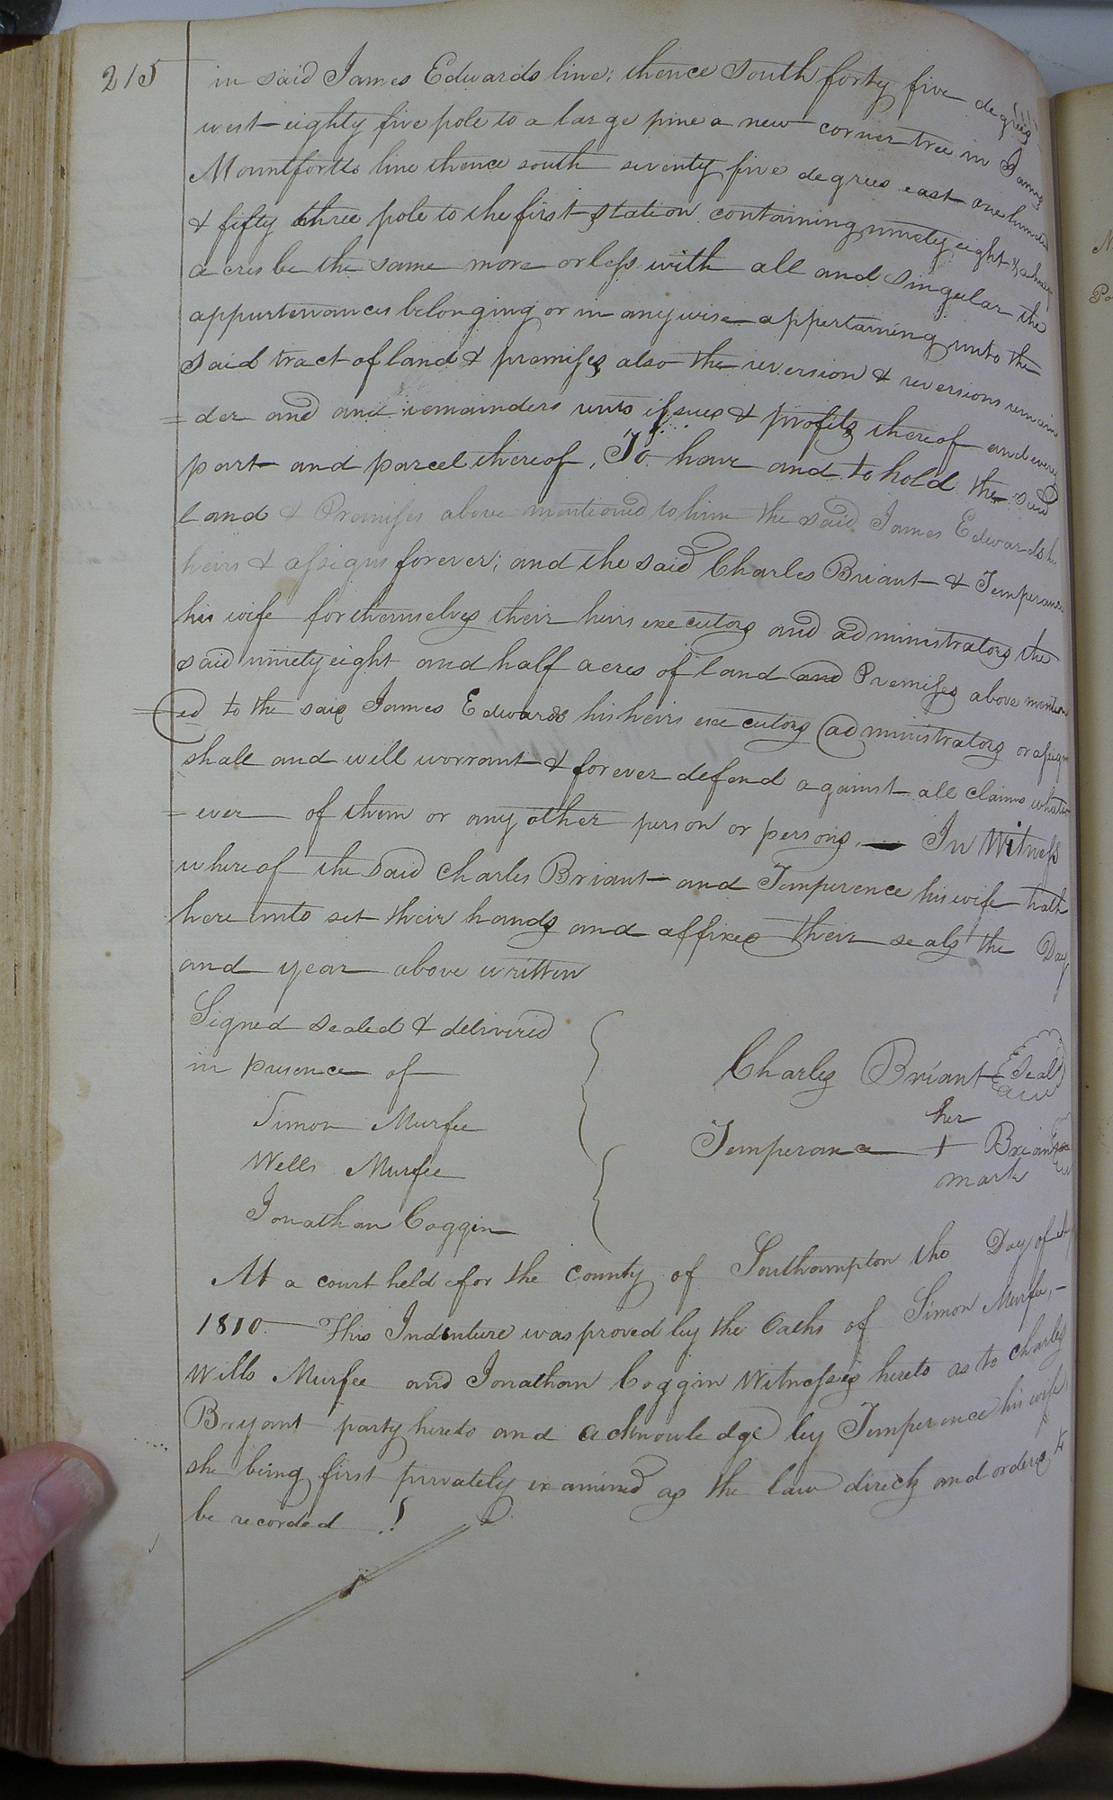 215
in said James Edwards line; thence South forty five degrees
west eighty five pole to a large pine a new corner tree in James
Mountfortts line thence south seventy five degrees east one hundred
& fifty three pole to the first station containing ninety eight & a half
acres be the same more or less with all and singular the
appurtenances belonging or in anywise appertaining unto the
said tract of land & premises also the reversion & reversions remain
=der and and remainders unto issues & profits thereof and every
part and parcel thereof, To have and to hold the said
land & Premises above mentioned to him the said James Edwards his
heirs & assigns forever; and the said Charles Briant & Temperance
his wife for themselves their heirs executors and administrators the
said ninety eight and half acres of land and Premises above mention
=ed to the said James Edwards his heirs executors administrators or assigns
shall and will worrant & forever defend against all claims whatso
=ever of them or any other person or persons. — In Witness
whereof the said Charles Briant and Temperence his wife hath
here unto set their hands and affixed their seals the Day
and year above written
Signed sealed & delivered
in presence of
Simon Murfee
Wells Murfee
Jonathan Coggin
Charles Briant Seal
her
Temperance + Briant
mark
At a court held for the County of Southampton the Day of
1810. — This Indenture was proved by the Oaths of Simon Murfee, —
Wills Murfee and Jonathan Coggin Witnesses hereto as to Charles
Bryant party hereto and acknowledge by Temperence his wife
she being first privately examined as the law directs and ordered to
be recorded !